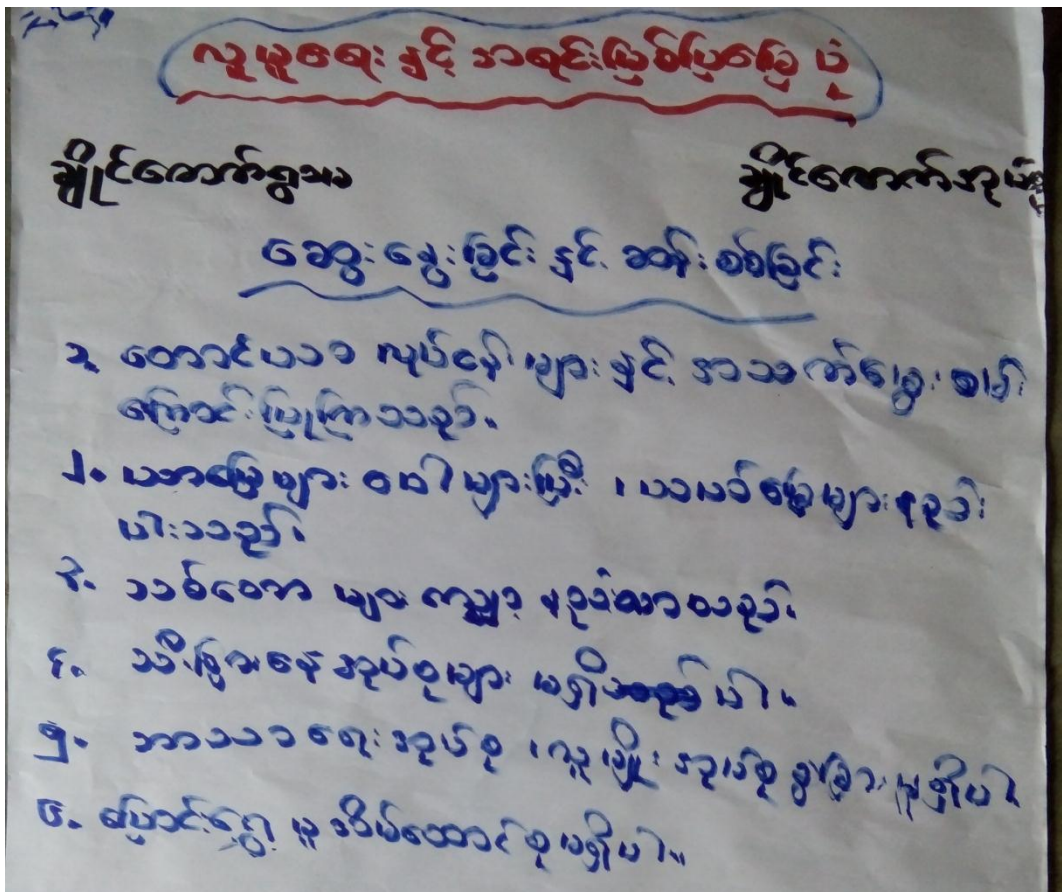 လူမှုရေး နှင့် အရင်းမြစ်ပြမြေပုံ
ချိုင်ကောက်ရွာ
ချိုင်ကောက်အုပ်စု
ဆွေးနွေးခြင်း နှင့် ဆန်းစစ်ခြင်း
၁. တောင်ယာ လုပ်ငန်းများ နှင့် အသက်မွေးဝမ်း
ကြောင်းပြုကြသည်။
၂. ယာမြေများ ပေါများပြီး ၊ လယ်မြေများနည်း
ပါးသည်။
၃. သစ်တော များ
၄. သီးခြားနေအုပ်စုများ မရှိ ပါ။
၅. ဘာသာရေးအုပ်စု ၊ လူမျိုးအုပ်စု ခွဲခြားမှုမရှိပါ
၆. ပြောင်းရွှေ့မှု အိမ်ထောင်စုမရှိပါ။